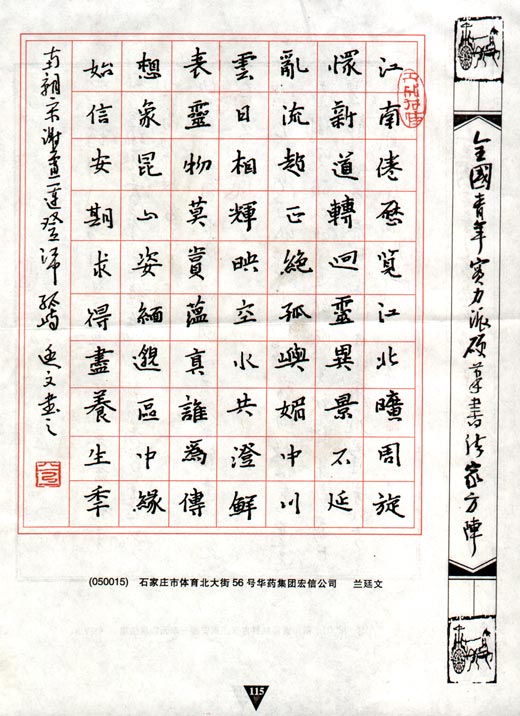 全國青年實力派硬筆書法家方陣
江南倦歷覽江北曠周旋
懷新道轉迥靈異景不延
亂流趨正絕孤嶼媚中川
雲日相輝映空水共澄鮮
表靈物莫賞蘊真誰為傳
想象昆山姿緬邈區中緣
始信安期求得盡養生年
南朝宋謝靈運登江中孤嶼 廷文書之
(050015) 石家庄市体育北大街 56 号华药集团宏信公司 兰廷文
115